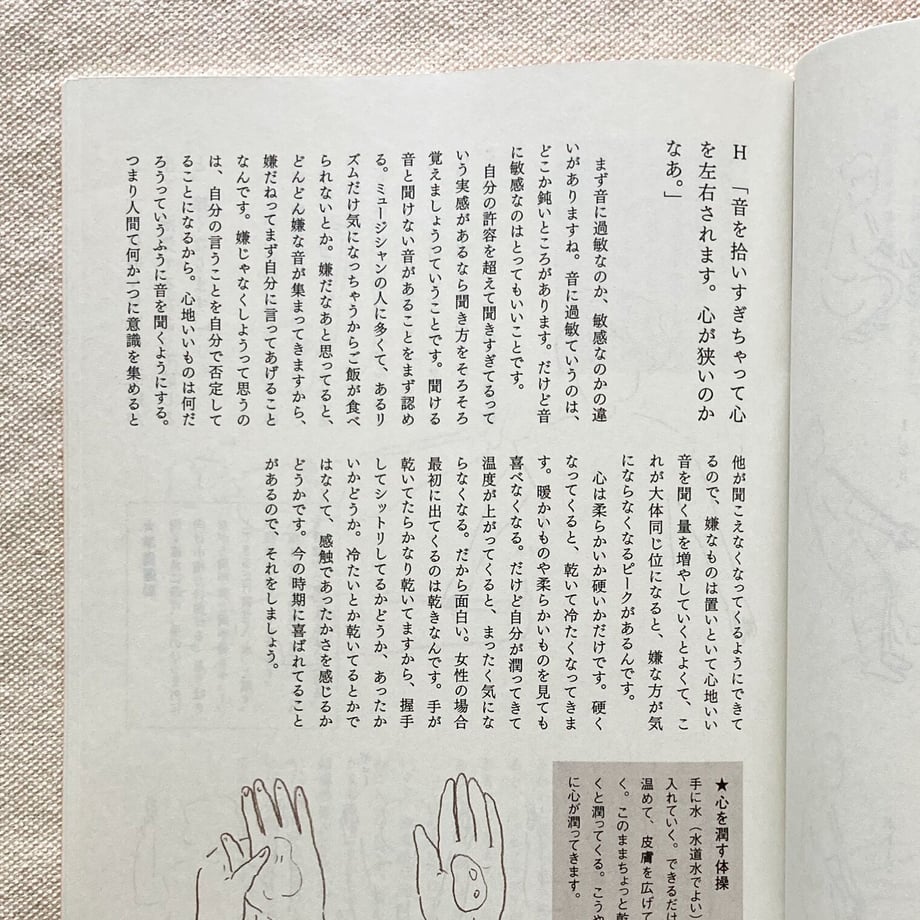 H　「音を拾いすぎちゃって心
を左右されます。心が狭いのか
なあ。」
まず音に過敏なのか、敏感なのかの違
いがありますね。音に過敏ていうのは、
どこか鈍いところがあります。だけど音
に敏感なのはとってもいいことです。
自分の許容を超えて聞きすぎてるって
いう実感があるなら聞き方をそろそろ
覚えましょうっていうことです。聞ける
音と聞けない音があることをまず認め
る。ミュージシャンの人に多くて、あるリ
ズムだけ気になっちゃうからご飯が食べ
られないとか。嫌だなあと思ってると、
どんどん嫌な音が集まってきますから、
嫌だねってまず自分に言ってあげること
なんです。嫌じゃなくしようって思うの
は、自分の言うことを自分で否定して
ることになるから。心地いいものは何だ
ろうっていうふうに音を聞くようにする。
つまり人間て何か一つに意識を集めると
他が聞こえなくなってくるようにできて
るので、嫌なものは置いといて心地いい
音を聞く量を増やしていくとよくて、こ
れが大体同じ位になると、嫌な方が気
にならなくなるピークがあるんです。
心は柔らかいか硬いかだけです。硬く
なってくると、乾いて冷たくなってきま
す。暖かいものや柔らかいものを見ても
喜べなくなる。だけど自分が潤ってきて
温度が上がってくると、まったく気にな
らなくなる。だから面白い。女性の場合
最初に出てくるのは乾きなんです。手が
乾いてたらかなり乾いてますから、握手
してシットリしてるかどうか、あったか
いかどうか。冷たいとか乾いてるとかで
はなくて、感触であったかさを感じるか
どうかです。今の時期に喜ばれてること
があるので、それをしましょう。
★心を潤す体操
手に水（水道水でよい）
入れていく。できるだけ
温めて、皮膚を広げて
く。このままちょっと乾
くと潤ってくる。こうや
に心が潤ってきます。